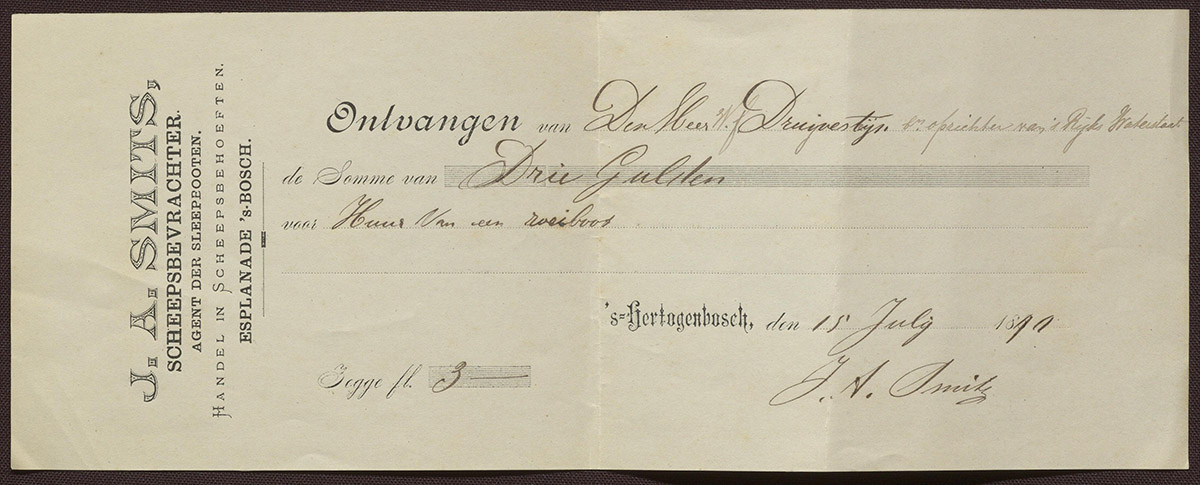 J. A. SMITS,
SCHEEPSBEVRACHTER.
AGENT DER SLEEPBOOTEN.
HANDEL IN SCHEEPSBEHOEFTEN.
ESPLANADE 's-BOSCH.
Ontvangen van Den Heer Druijvestijn opzichter van 's Rijks Waterstaat
de Somme van Drie Gulden
voor Huur van een roeiboot
's=Hertogenbosch, den 15 July 1890
Zegge fl. 3
J. A. Smits